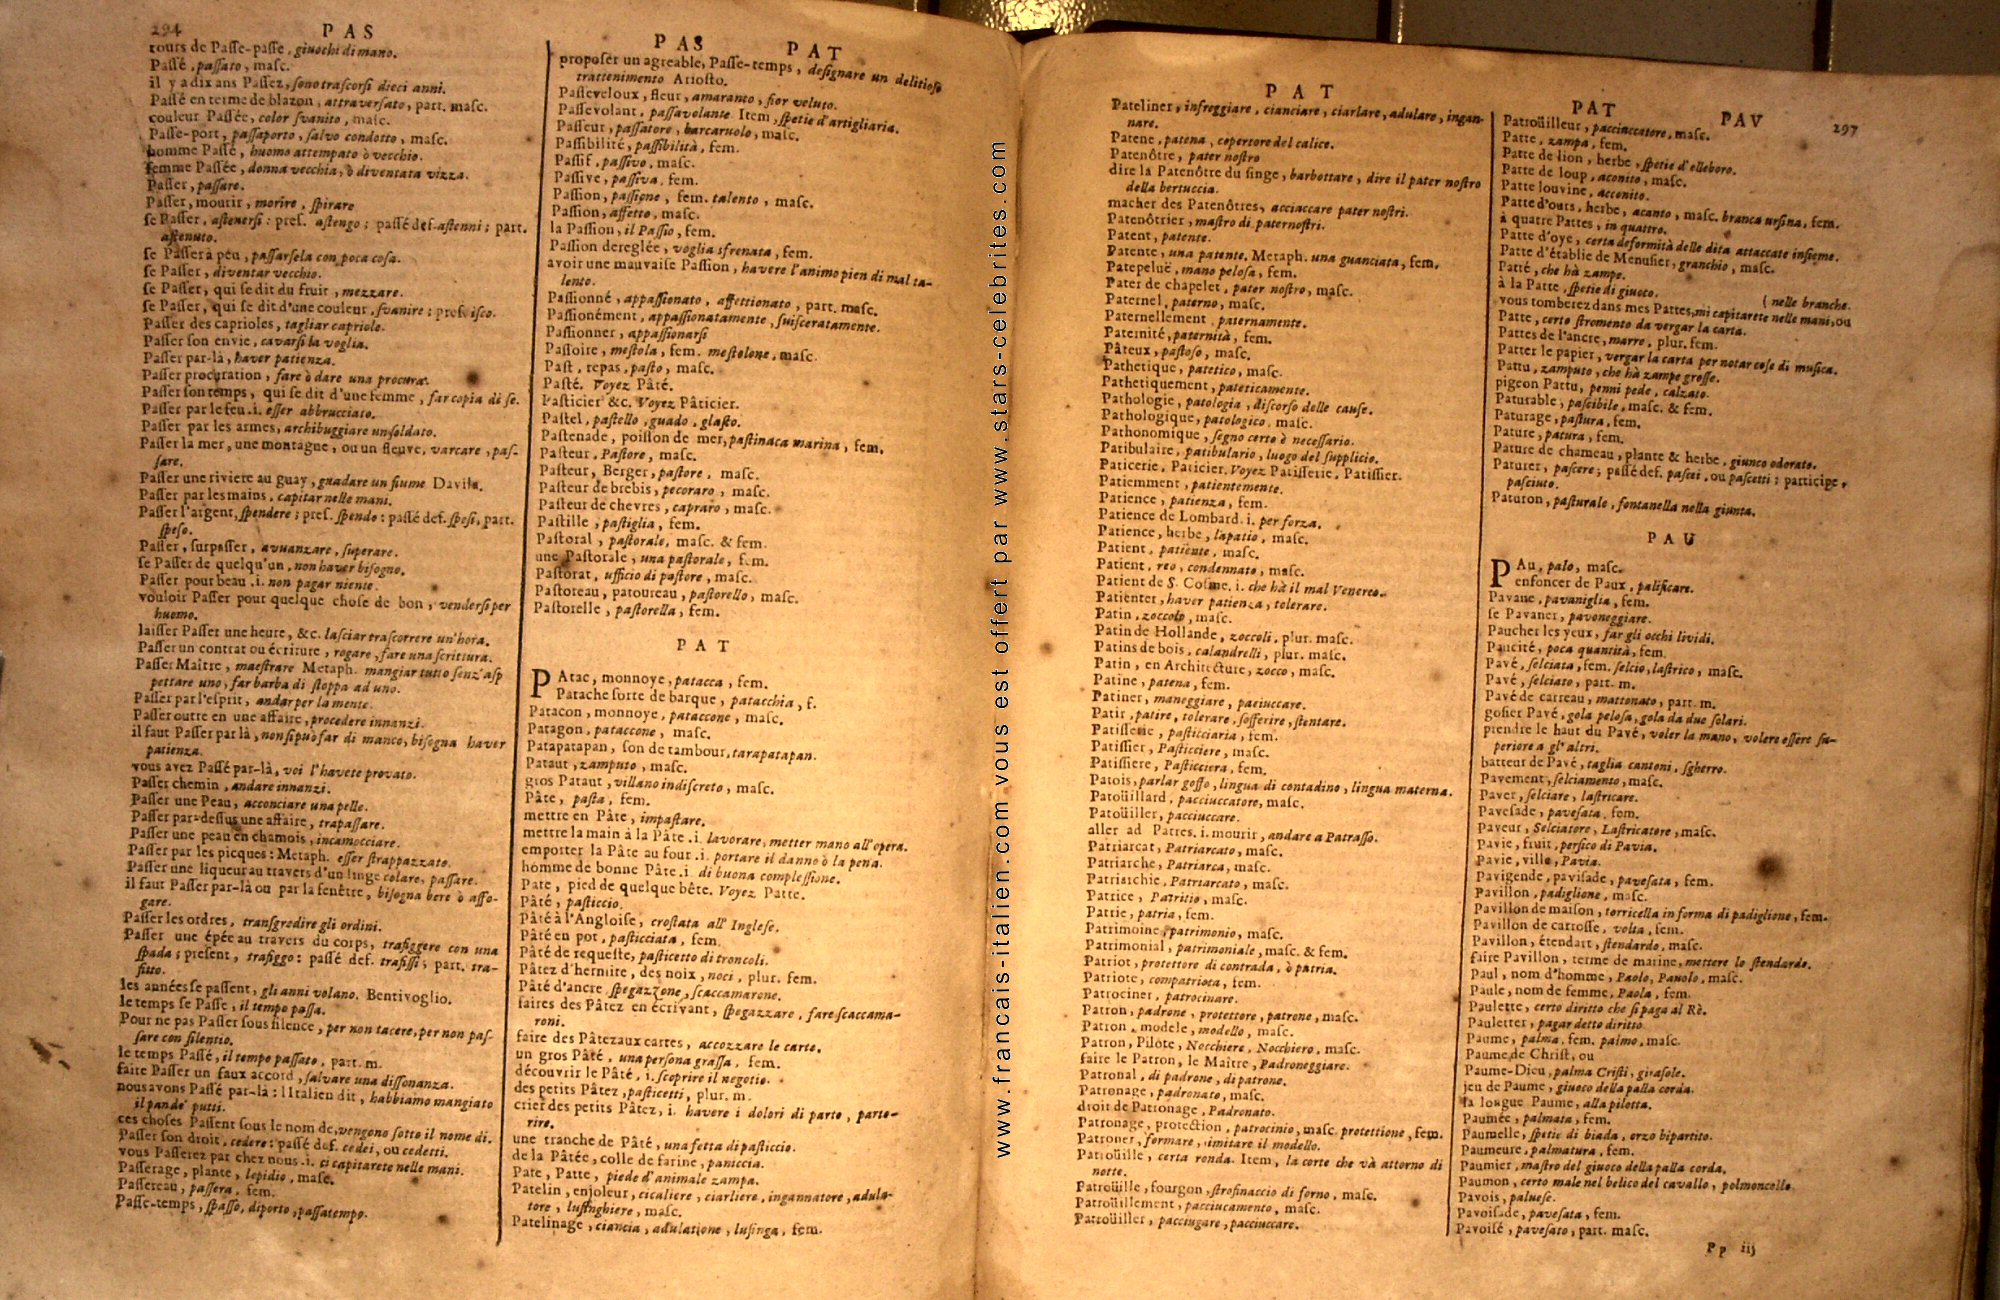 294
PAS
tours de Passe-passe, giuochi di mano.
Passé, passato, masc.
il y a dix ans Passez, sono trascorsi dieci anni.
Passé en terme de blazon, attraversato, part. masc.
couleur Passée, color svanito, masc.
Passe-port, passaporto, salvo condotto, masc.
homme Passé, huomo attempato ò vecchio.
femme Passée, donna vecchia, ò diventata vizza.
Passer, passare.
Passer, mourir, morire, spirare
se Passer, astenersi: pres. astengo; passé def. astenni; part.
astenuto.
se Passer à peu, passarsela con poca cosa.
se Passer, diventar vecchio.
se Passer, qui se dit du fruit, mezzare.
se Passer, qui se dit d'une couleur, svanire; pres. isco.
Passer des caprioles, tagliar capriole.
Passer son envie, cavarsi la voglia.
Passer par-là, haver patienza.
Passer procuration, fare ò dare una procura.
Passer son temps, qui se dit d'une femme, far copia di se.
Passer par le feu .i. esser abbrucciato.
Passer par les armes, archibuggiare un soldato.
Passer la mer, une montagne, ou un fleuve, varcare, pas-
sare.
Passer une riviere au guay, guadare un fiume Davila.
Passer par les mains, capitar nelle mani.
Passer l'argent, spendere; pres. spendo: passé def. spesi, part.
speso.
Passer, surpasser, avvanzare, superare.
se Passer de quelqu'un, non haver bisogno.
Passer pour beau .i. non pagar niente.
vouloir Passer pour quelque chose de bon, vendersi per
huomo.
laisser Passer une heure, &c. lasciar trascorrere un'hora.
Passer un contrat ou écriture, rogare, fare una scrittura.
Passer Maître, maestrare Metaph. mangiar tutto senz'asp
pettare uno, far barba di stoppa ad uno.
Passer par l'esprit, andar per la mente.
Passer outre en une affaire, procedere innanzi.
il faut Passer par là, non si può far di manco, bisogna haver
patienza.
vous avez Passé par-là, voi l'havete provato.
Passer chemin, andare innanzi.
Passer une Peau, acconciare una pelle.
Passer par-dessus une affaire, trapassare.
Passer une peau en chamois, incamocciare.
Passer par les picques: Metaph. esser strappazzato.
Passer une liqueur au travers d'un linge colare, passare.
il faut Passer par-là ou par la fenêtre, bisogna bere ò affo-
gare.
Passer les ordres, transgredire gli ordini.
Passer une épée au travers du corps, trafiggere con una
spada; present, trafiggo: passé def. trafissi; part. tra-
fitto.
les années se passent, gli anni volano. Bentivoglio.
le temps se Passe, il tempo passa.
Pour ne pas Passer sous silence, per non tacere, per non pas-
sare con silentio.
le temps Passé, il tempo passato, part. m.
faite Passer un faux accord, salvare una dissonanza.
nous avons Passé par-là: l'Italien dit, habbiamo mangiato
il pande putti.
ces choses Passent sous le nom de, vengono sotto il nome di.
Passer son droit, cedere: passé def. cedei, ou cedetti.
vous Passerez par chez nous .i. ci capitarete nelle mani.
Passerage, plante, lepidio, masc.
Passereau, passera, fem.
Passe-temps, spasso, diporto, passatempo.
PAS PAT
proposer un agreable, Passe-temps, designare un delitioso
trattenimento Ariosto.
Passeveloux, fleur, amaranto, fior veluto.
Passevolant, passavolante. Item, spetie d'artigliaria.
Passeur, passatore, barcaruolo, masc.
Passibilité, passibilità, fem.
Passif, passivo, masc.
Passive, passiva, fem.
Passion, passione, fem. talento, masc.
Passion, affetto, masc.
la Passion, il Passio, fem.
Passion dereglée, voglia sfrenata, fem.
avoir une mauvaise Passion, havere l'animo pien di mal ta-
lento.
Passionné, appassionato, affettionato, part. masc.
Passionément, appassionatamente, suisceratamente.
Passionner, appassionarsi
Passoire, mestola, fem. mestolone, masc.
Past, repas, pasto, masc.
Pasté. Voyez Pâté.
Pasticier &c. Voyez Pâticier.
Pastel, pastello, guado, glasto.
Pastenade, poisson de mer, pastinaca marina, fem.
Pasteur, Pastore, masc.
Pasteur, Berger, pastore, masc.
Pasteur de brebis, pecoraro, masc.
Pasteur de chevres, capraro, masc.
Pastille, pastiglia, fem.
Pastoral, pastorale, masc. & fem.
une Pastorale, una pastorale, fem.
Pastorat, ufficio di pastore, masc.
Pastoreau, patoureau, pastorello, masc.
Pastorelle, pastorella, fem.
PAT
PAtac, monnoye, patacca, fem.
Patache sorte de barque, patacchia, f.
Patacon, monnoye, pataccone, masc.
Patagon, pataccone, masc.
Patapatapan, son de tambour, tarapatapan.
Pataut, zamputo, masc.
gros Pataut, villano indiscreto, masc.
Pâte, pasta, fem.
mettre en Pâte, impastare.
mettre la main à la Pâte .i. lavorare, metter mano all'opera.
emporter la Pâte au four .i. portare il danno ò la pena.
homme de bonne Pâte .i. di buona complessione.
Pate, pied de quelque bête. Voyez Patte.
Pâté, pasticcio.
Pâté à l'Angloise, crostata all'Inglese.
Pâté en pot, pasticciata, fem.
Pâté de requeste, pasticetto di troncoli.
Pâtez d'hermite, des noix, noci, plur. fem.
Pâté d'ancre, spegazzone, scaccamarone.
faires des Pâtez en écrivant, spegazzare, fare scaccama-
roni.
faire des Pâtez aux cartes, accozzare le carte.
un gros Pâté, una persona grassa, fem.
découvrir le Pâté, i. scoprire il negotio.
des petits Pâtez, pasticetti, plur. m.
crier des petits Pâtez, i. havere i dolori di parto, parto-
rire.
une tranche de Pâté, una fetta di pasticcio.
de la Pâtée, colle de farine, paniccia.
Pate, Patte, piede d'animale zampa.
Patelin, enjoleur, cicaliere, ciarliere, ingannatore, adula-
tore, lusinghiere, masc.
Patelinage, ciancia, adulatione, lusinga, fem.
www.francais-italien.com vous est offert par www.stars-celebrites.com
PAT
Pateliner, infreggiare, cianciare, ciarlare, adulare, ingan-
nare.
Patene, patena, copertore del calice.
Patenôtre, pater nostro
dire la Patenôtre du singe, barbottare, dire il pater nostro
della bertuccia.
macher des Patenôtres, acciaccare pater nostri.
Patenôtrier, mastro di paternostri.
Patent, patente.
Patente, una patente. Metaph. una guanciata, fem.
Patepeluë, mano pelosa, fem.
Pater de chapelet, pater nostro, masc.
Paternel, paterno, masc.
Paternellement, paternamente.
Paternité, paternità, fem.
Pâteux, pastoso, masc.
Pathetique, patetico, masc.
Pathetiquement, pateticamente.
Pathologie, patologia, discorso delle cause.
Pathologique, patologico, masc.
Pathonomique, segno certo ò necessario.
Patibulaire, patibulario, luogo del supplicio.
Paticerie, Paticier. Voyez Patisserie, Patissier.
Patiemment, patientemente.
Patience, patienza, fem.
Patience de Lombard. i. per forza.
Patience, herbe, lapatio, masc.
Patient, patiente, masc.
Patient, reo, condennato, masc.
Patient de S. Cosme. i. che hà il mal Venereo.
Patienter, haver patienza, tolerare.
Patin, zoccolo, masc.
Patin de Hollande, zoccoli, plur. masc.
Patins de bois, calandrelli, plur. masc.
Patin, en Architecture, zocco, masc.
Patine, patena, fem.
Patiner, maneggiare, paciuccare.
Patir, patire, tolerare, sofferire, stentare.
Patisserie, pasticciaria, fem.
Patissier, Pasticciere, masc.
Patissiere, Pasticciera, fem.
Patois, parlar goffo, lingua di contadino, lingua materna.
Patoüillard, pacciuccatore, masc.
Patoüiller, pacciuccare.
aller ad Patres. i. mourir, andare a Patrasso.
Patriarcat, Patriarcato, masc.
Patriarche, Patriarca, masc.
Patriarchie, Patriarcato, masc.
Patrice, Patritio, masc.
Patrie, patria, fem.
Patrimoine, patrimonio, masc.
Patrimonial, patrimoniale, masc. & fem.
Patriot, protettore di contrada, ò patria.
Patriote, compatriota, fem.
Patrociner, patrocinare.
Patron, padrone, protettore, patrone, masc.
Patron, modele, modello, masc.
Patron, Pilote, Nocchiere, Nocchiero, masc.
faire le Patron, le Maître, Padroneggiare.
Patronal, di padrone, di patrone.
Patronage, padronato, masc.
droit de Patronage, Padronato.
Patronage, protection, patrocinio, masc. protettione, fem.
Patroner, formare, imitare il modello.
Patroüille, certa ronda. Item, la corte che và attorno di
notte.
Patroüille, fourgon, strofinaccio di forno, masc.
Patroüillement, pacciucamento, masc.
Patroüiller, pacciugare, pacciuccare.
PAT PAV 297
Patroüilleur, pacciaccatore, masc.
Patte, zampa, fem.
Patte de lion, herbe, spetie d'elleboro.
Patte de loup, aconito, masc.
Patte louvine, acconito.
Patte d'ours, herbe, acanto, masc. branca ursina, fem.
à quatre Pattes, in quattro.
Patte d'oye, certa deformità delle dita attaccate insieme.
Patte d'établie de Menusier, granchio, masc.
Patté, che hà zampe.
à la Patte, spetie di giuoco.
{ nelle branche.
vous tomberez dans mes Pattes, mi capitarete nelle mani, ou
Patte, certo stromento da vergar la carta.
Pattes de l'ancre, marre, plur. fem.
Patter le papier, vergar la carta per notar cose di musica.
Pattu, zamputo, che hà zampe grosse.
pigeon Pattu, penni pede, calzato.
Paturable, pascibile, masc. & fem.
Paturage, pastura, fem.
Pature, patura, fem.
Pature de chameau, plante & herbe, giunco odorato.
Paturer, pascere; passé def. pascei, ou pascetti; participe,
pasciuto.
Paturon, pasturale, fontanella nella giunta.
PAU
PAu, palo, masc.
enfoncer de Paux, palificare.
Pavane, pavaniglia, fem.
se Pavaner, pavoneggiare.
Paucher les yeux, far gli occhi lividi.
Paucité, poca quantità, fem.
Pavé, selciata, fem. selcio, lastrico, masc.
Pavé, selciato, part. m.
Pavé de carreau, mattonato, part. m.
gosier Pavé, gola pelosa, gola da due solari.
prendre le haut du Pavé, voler la mano, volere essere su-
periore a gl'altri.
batteur de Pavé, taglia cantoni, sgherro.
Pavement, selciamento, masc.
Paver, selciare, lastricare.
Pavesade, pavesata, fem.
Paveur, Selciatore, Lastricatore, masc.
Pavie, fruit, persico di Pavia.
Pavie, ville, Pavia.
Pavigende, pavisade, pavesata, fem.
Pavillon, padiglione, masc.
Pavillon de maison, torricella in forma di padiglione, fem.
Pavillon de carrosse, volta, fem.
Pavillon, étendart, stendardo, masc.
faire Pavillon, terme de marine, mettere lo stendardo.
Paul, nom d'homme, Paolo, Pauolo, masc.
Paule, nom de femme, Paola, fem.
Paulette, certo diritto che si paga al Rè.
Pauletter, pagar detto diritto
Paume, palma, fem. palmo, masc.
Paume de Christ, ou
Paume-Dieu, palma Cristi, girasole.
jeu de Paume, giuoco della palla corda.
la longue Paume, alla pilotta.
Paumée, palmata, fem.
Paumelle, spetie di biada, orzo bipartito.
Paumeure, palmatura, fem.
Paumier, mastro del giuoco della palla corda.
Paumon, certo male nel belico del cavallo, polmoncello
Pavois, paluese.
Pavoisade, pavesata, fem.
Pavoisé, pavesato, part. masc.
Pp iij